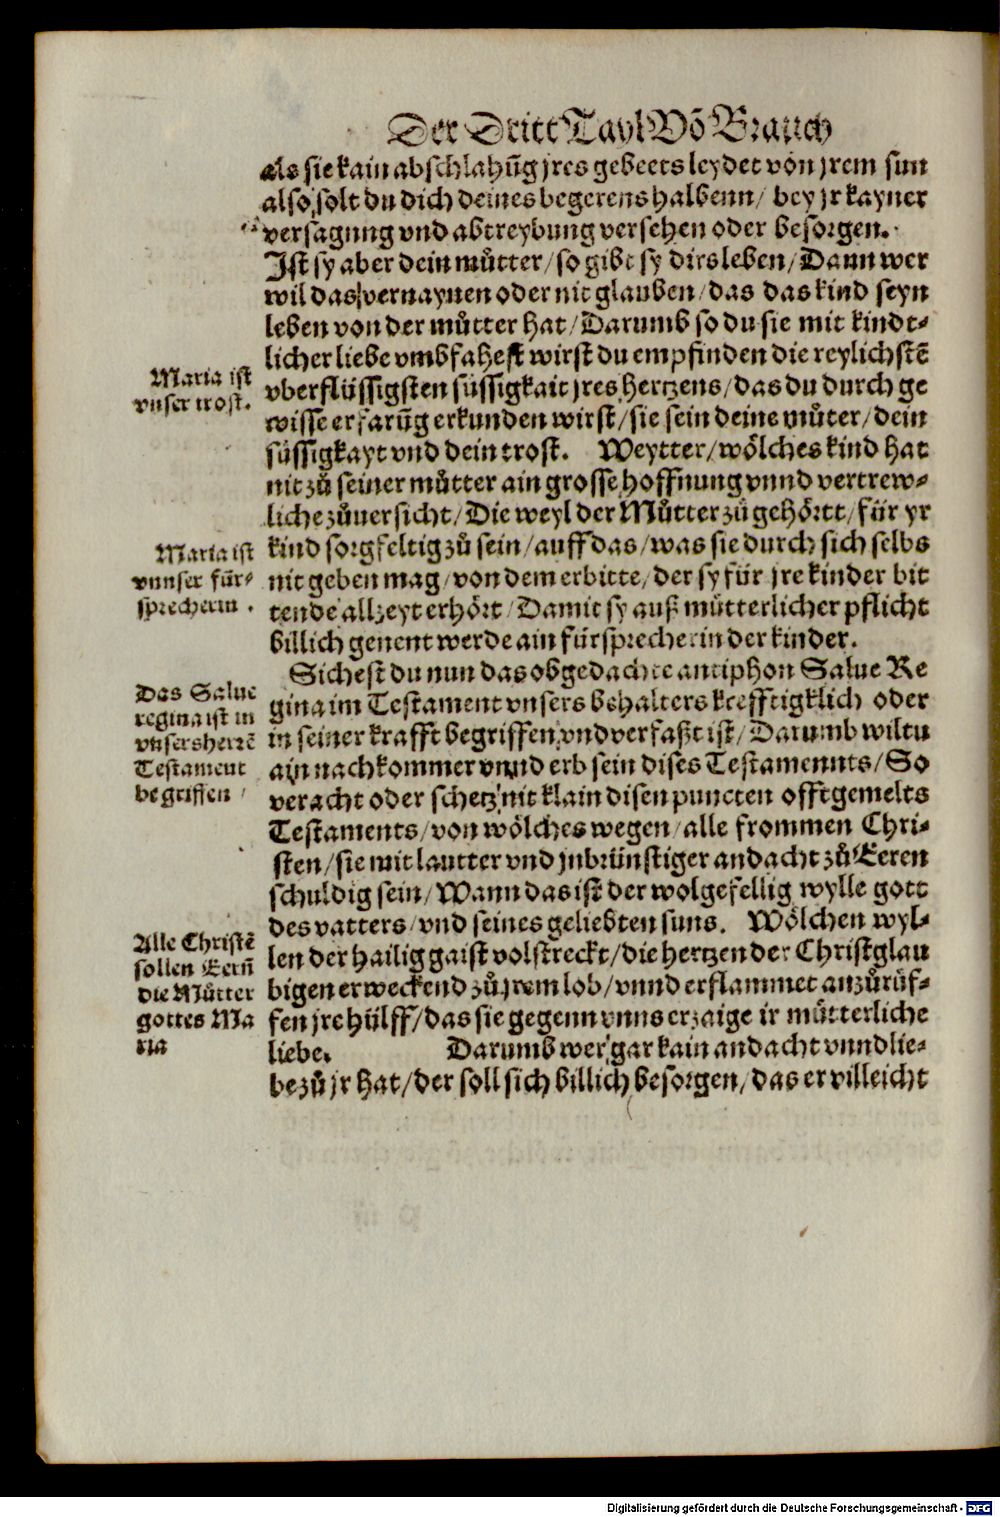 Der Dritt Tayl Võ Brauch
als sie kain abschlahũg jres gebeets leydet von jrem sun
also solt du dich deines begerens halbenn / bey jr kayner
versagung vnd abtreybung versehen oder besorgen.
Ist sy aber dein můtter / so gibt sy dirs leben / Dann wer
wil das vernaynen oder nit glauben / das das kind seyn
leben von der můtter hat / Darumb so du sie mit kindt-
licher liebe vmbfahest wirst du empfinden die reylichstẽ
Maria ist
vnser trost.
vberflüssigsten süssigkait jres hertzens / das du durch ge
wisse erfarũg erkunden wirst / sie sein deine můter / dein
süssigkayt vnd dein trost. Weytter / wölches kind hat
nit zů seiner můtter ain grosse hoffnung vnnd vertrew-
liche zůuersicht / Die weyl der Můtter zů gehörtt / für yr
Maria ist
vnnser für-
sprecherin.
kind sorgfeltig zů sein / auff das / was sie durch sich selbs
nit geben mag / von dem erbitte / der sy für jre kinder bit
tende allzeyt erhört / Damit sy auß můtterlicher pflicht
billich genent werde ain fürsprecherin der kinder.
Sichest du nun das obgedachte antiphon Salue Re
Das Salue
regina ist in
vnsers herrẽ
Testament
begriffen /
gina im Testament vnsers behalters krefftigklich oder
in seiner krafft begriffen vnd verfaßt ist / Darumb wiltu
ain nachkommer vnnd erb sein dises Testamennts / So
veracht oder schetz nit klain disen puncten offtgemelts
Testaments / von wölches wegen / alle frommen Chri-
sten / sie mit lautter vnd jnbrünstiger andacht zů Eeren
schuldig sein / Wann das ist der wolgefellig wylle gott
des vatters / vnd seines geliebten suns. Wölchen wyl-
Alle Christẽ
sollen Eerñ
die Můtter
gottes Ma
ria
len der hailig gaist volstreckt / die hertzen der Christglau
bigen erweckend zů jrem lob / vnnd erflammet anzůrüf-
fen jre hülff / das sie gegenn vnns erzaige ir můtterliche
liebe. Darumb wer gar kain andacht vnnd lie-
be zů jr hat / der soll sich billich besorgen / das er villeicht
Digitalisierung gefördert durch die Deutsche Forschungsgemeinschaft - DFG